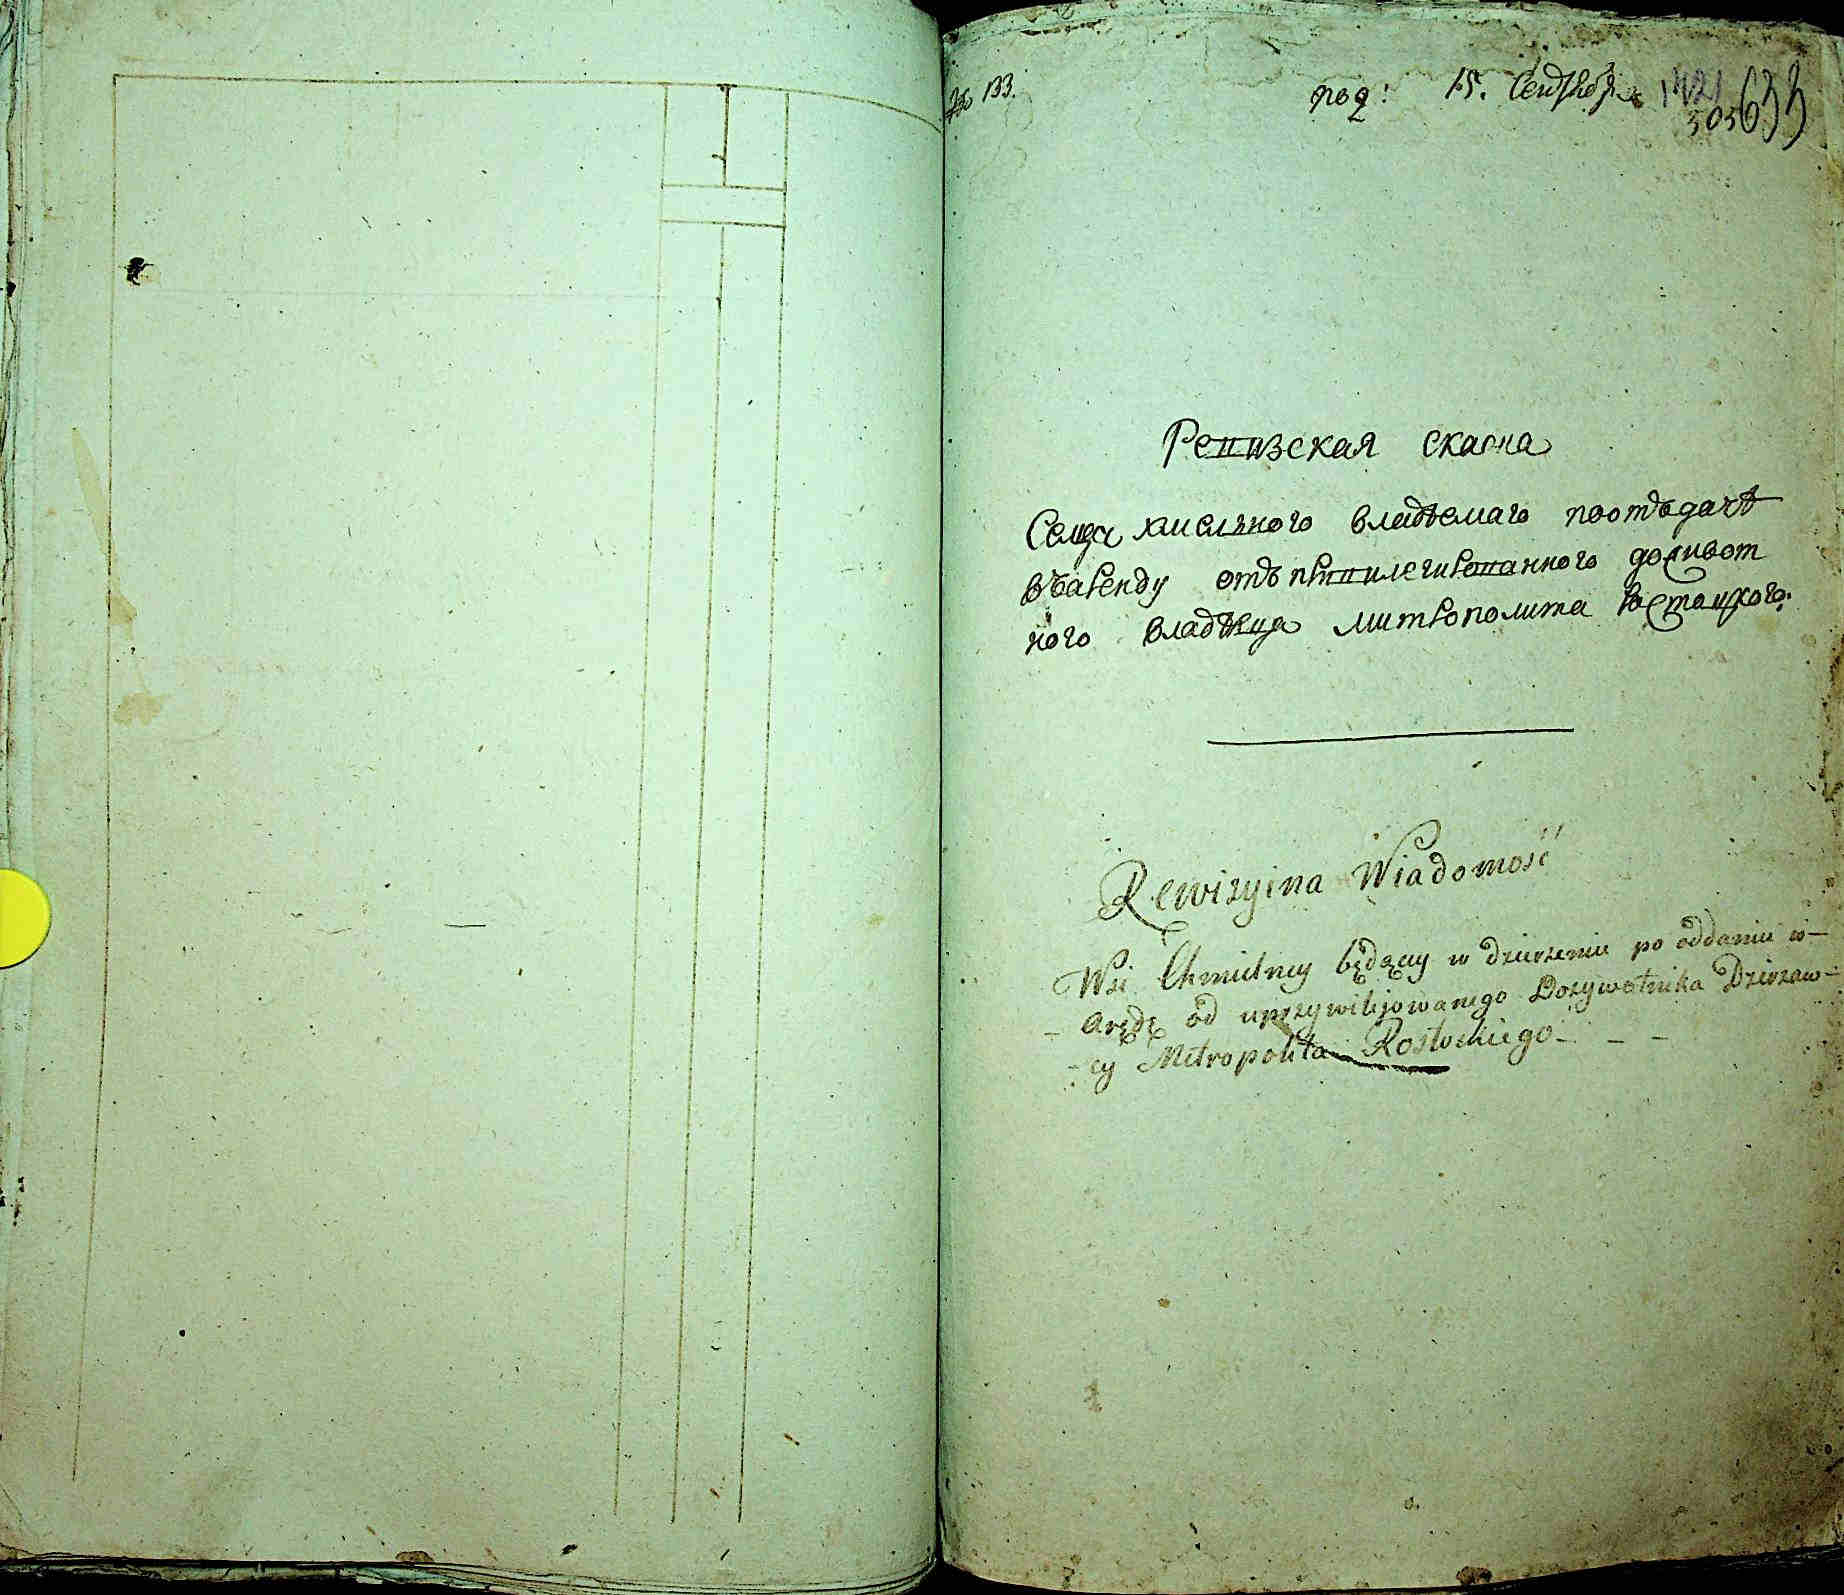 № 133.
под: 15. Сентября 1421
505 633
Ревизская скаска
Селца хмельного владѣемаго поотъдачѣ
въаренду отъ привилегированного доживот
ного владѣлца митрополита Ростоцкого.
Rewizyina Wiadomość
Wsi Chmielney będącey w dzierzeniu po oddaniu w
arędę od uprzywilejowanego Dozywotnika Dzierzaw
cy Metropolita Rostockiego